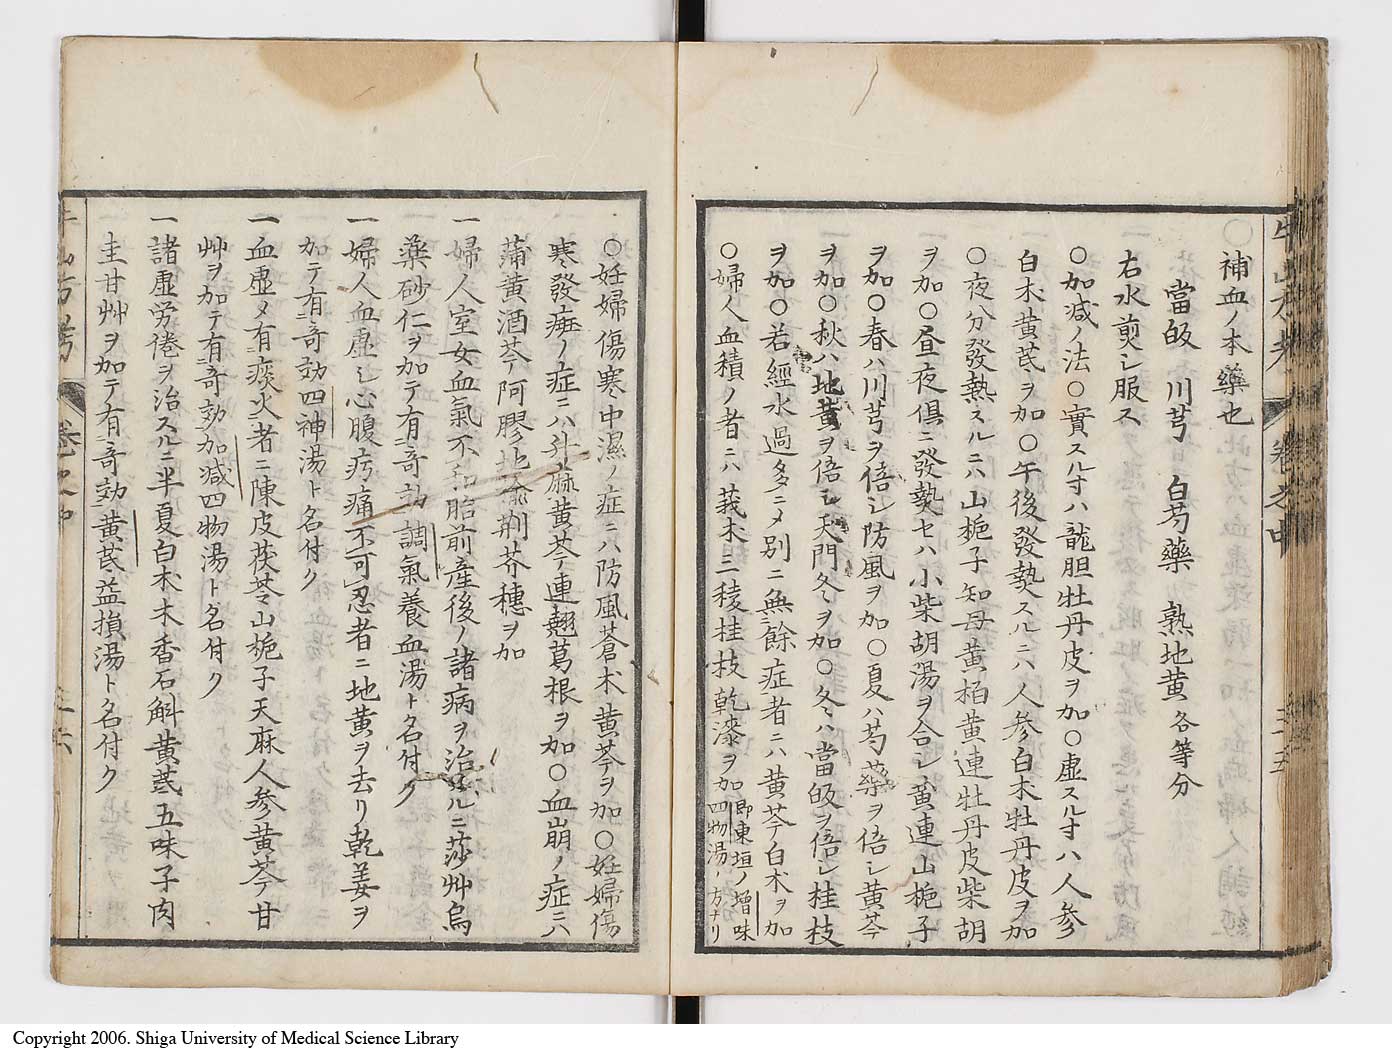 補血ノ本藥也
當皈 川芎 白芍藥 熟地黄各等分
右水煎シ服ス
○加减ノ法○實スルヿハ龍胆牡丹皮ヲ加○虚スルヿハ人参
白术黄芪ヲ加○午後發熱スルニハ人参白术牡丹皮ヲ加
○夜分發熱スルニハ山梔子知母黄栢黄連牡丹皮柴胡
ヲ加○昼夜俱ニ發熱セハ小柴胡湯ヲ合シ黄連山梔子
ヲ加○春ハ川芎ヲ倍シ防風ヲ加○夏ハ芍藥ヲ倍シ黄芩
ヲ加○秋ハ地黄ヲ倍シ天門冬ヲ加○冬ハ當皈ヲ倍シ桂枝
ヲ加○若經水過多ニメ別ニ無餘症者ニハ黄芩白术ヲ加
○婦人血積ノ者ニハ莪朮三稜桂枝乾漆ヲ加即東垣ノ増味
四物湯ノ方ナリ
○妊婦傷寒中濕ノ症ニハ防風蒼朮黄芩ヲ加○妊婦傷
寒發班ノ症ニハ升麻黄芩連翹葛根ヲ加○血崩ノ症ニハ
蒲黄酒芩阿膠地楡荆芥穗ヲ加
一婦人室女血氣不和胎前産後ノ諸病ヲ治スルニ莎艸烏
藥砂仁ヲ加テ有奇効調氣養血湯ト名付ク
一婦人血虚シ心腹㽲痛不可忍者ニ地黄ヲ去リ乾姜ヲ
加テ有奇効四神湯ト名付ク
一血虚メ有痰火者ニ陳皮茯苓山梔子天麻人参黄芩甘
艸ヲ加テ有奇効加减四物湯ト名付ク
一諸虚労倦ヲ治スルニ半夏白朮木香石斛黄芪五味子肉
圭甘艸ヲ加テ有奇効黄芪益損湯ト名付ク
Copyright 2006. Shiga University of Medical Science Library